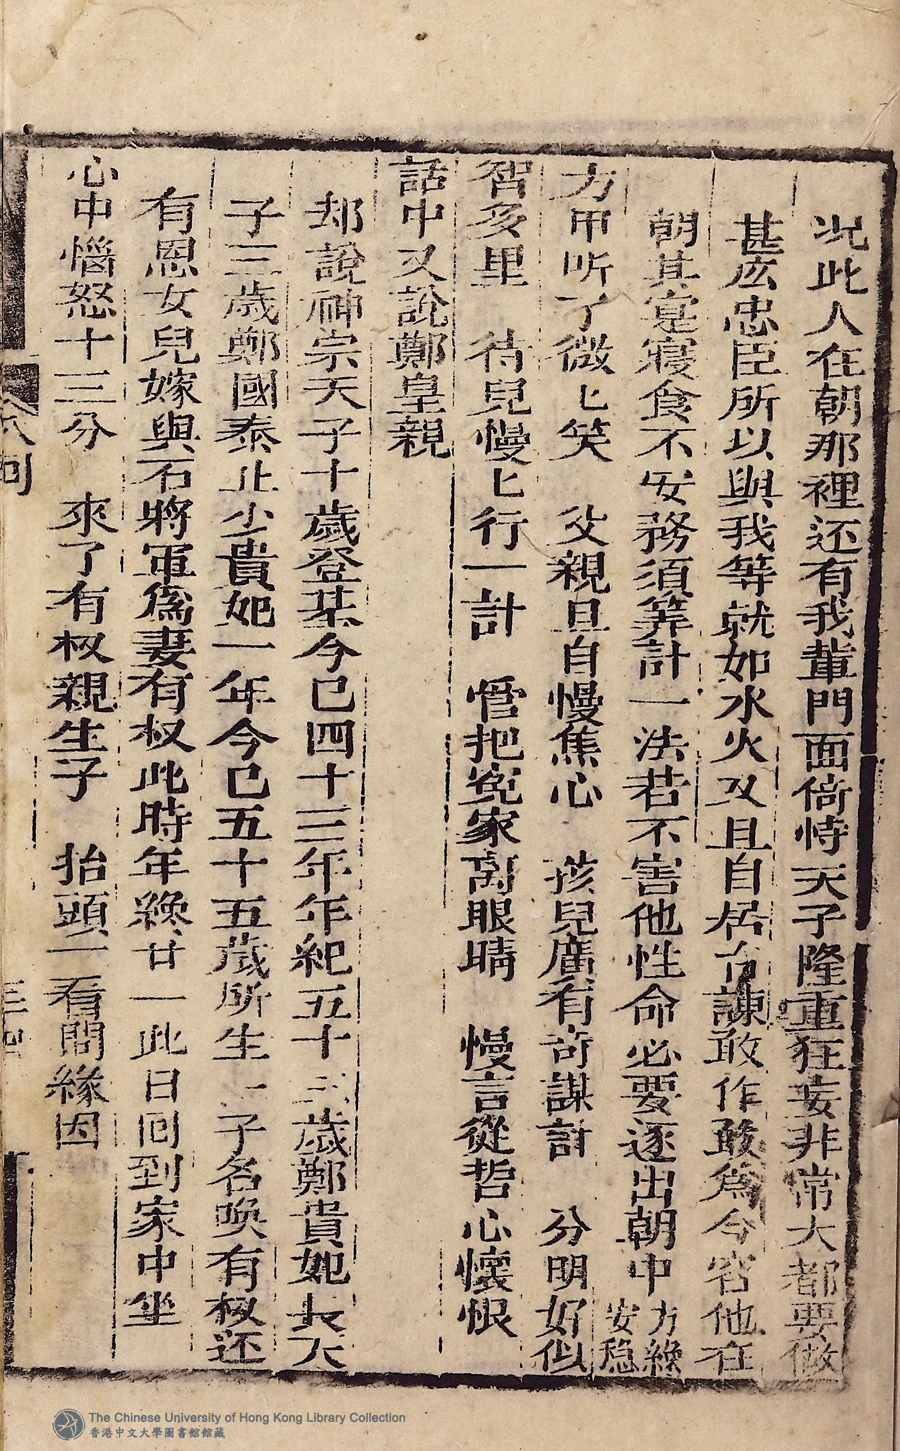 况此人在朝那裡还有我輩門面倚恃天子隆重狂妄非常大都要做
甚庅忠臣所以與我等就如水火又且自居台諫敢作敢為今容他在
朝其寔寢食不安務須筭計一法若不害他性命必要逐出朝中方纔安穏
方甲听了微〻笑　父親且自慢焦心　孩兒廣有奇謀計　分明好似
智多星　待兒慢〻行一計　管把冤家离眼睛　慢言從哲心懷恨
話中又說鄭皇親
却說神宗天子十歲登基今已四十三年年紀五十三歲鄭貴妃長天
子三歲鄭國泰止少貴妃一年今已五十五歲所生一子名喚有权还
有恩女兒嫁與石將軍爲妻有权此時年纔廿一此日回到家中坐
心中惱怒十三分　來了有权親生子　抬頭一看問緣因
The Chinese University of Hong Kong Library Collection
香港中文大學圖書館館藏